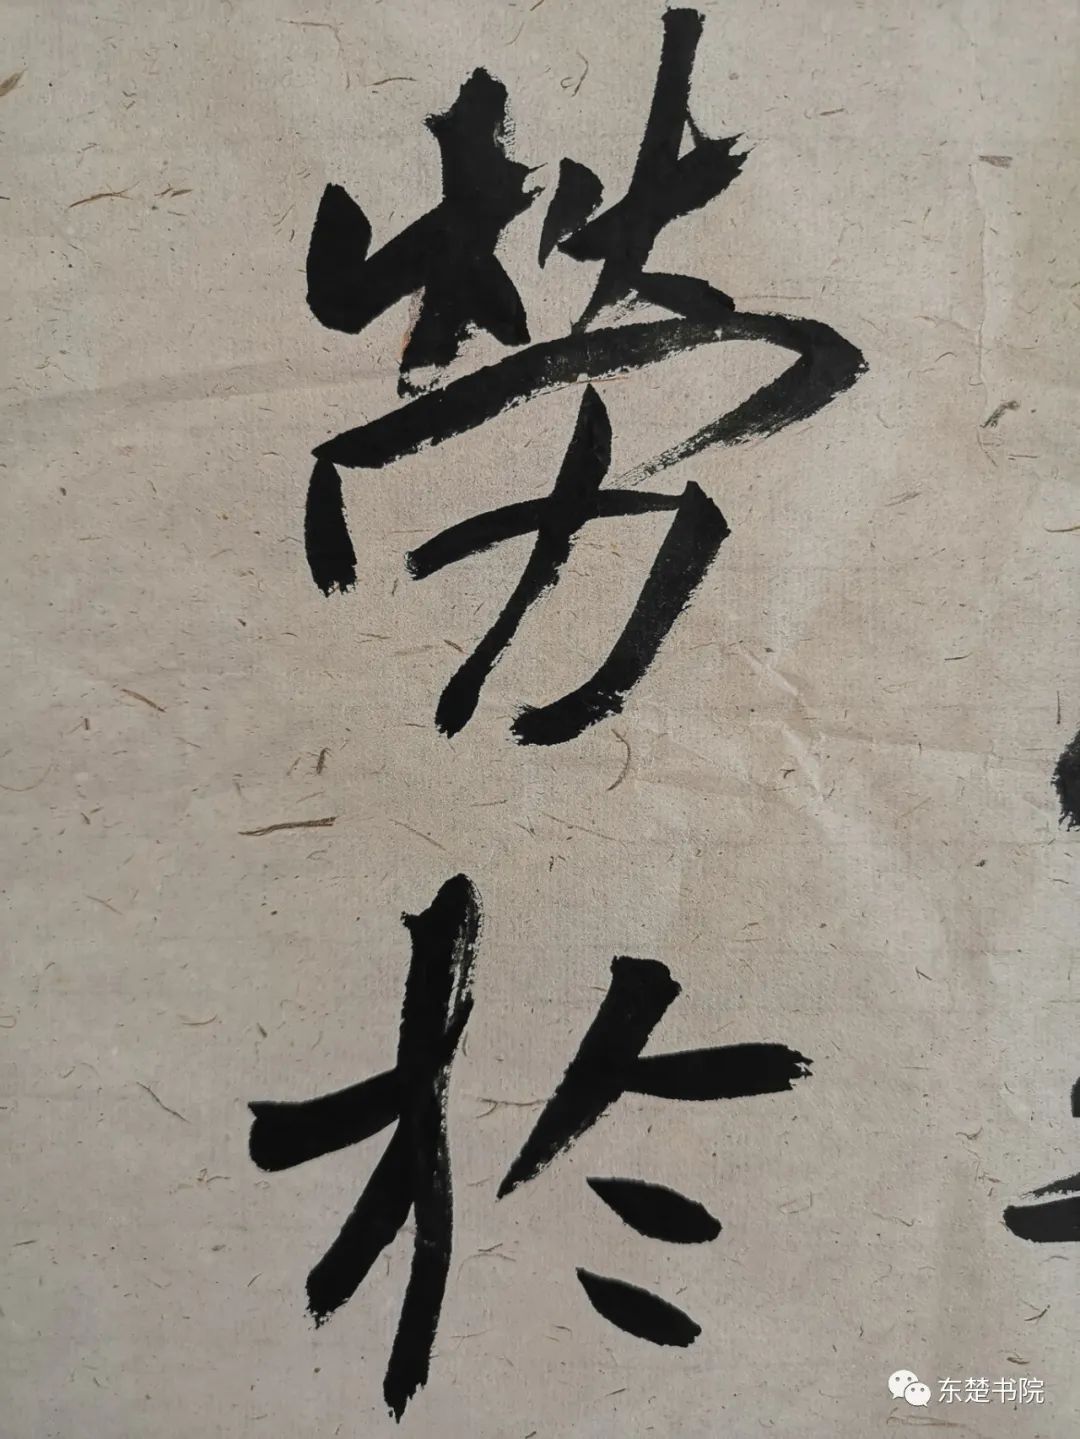 勞
於
东楚书院